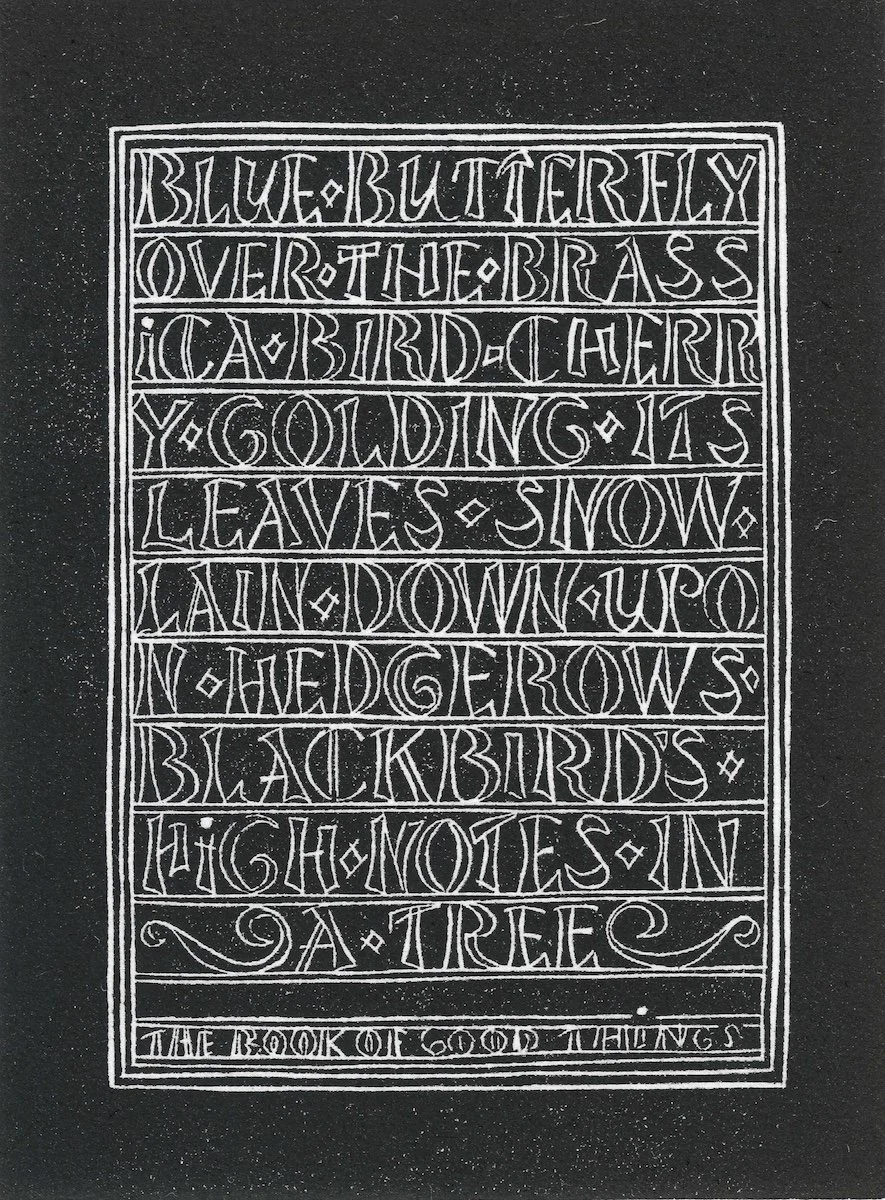 BLUE⋄BUTTERFLY
OVER⋄THE⋄BRASS
iCA⋄BIRD⋄CHERR
Y⋄GOLDING⋄ITS
LEAVES⋄SNOW⋄
LAIN⋄DOWN⋄UPO
N⋄HEDGEROWS⋄
BLACKBIRD'S⋄
HiGH⋄NOTES⋄IN
A⋄TREE
THE BOOK OF GOOD THINGS